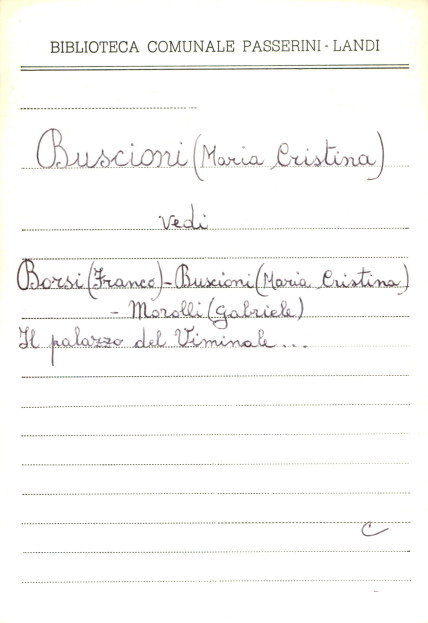 BIBLIOTECA COMUNALE PASSERINI - LANDI
Buscioni (Maria Cristina)
vedi
Borsi (Franco) - Buscioni (Maria Cristina)
- Morolli (Gabriele)
Il palazzo del Viminale ...
C